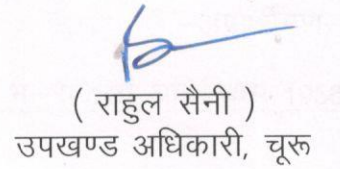 ( राहुल सैनी )
उपखण्ड अधिकारी, चूरू